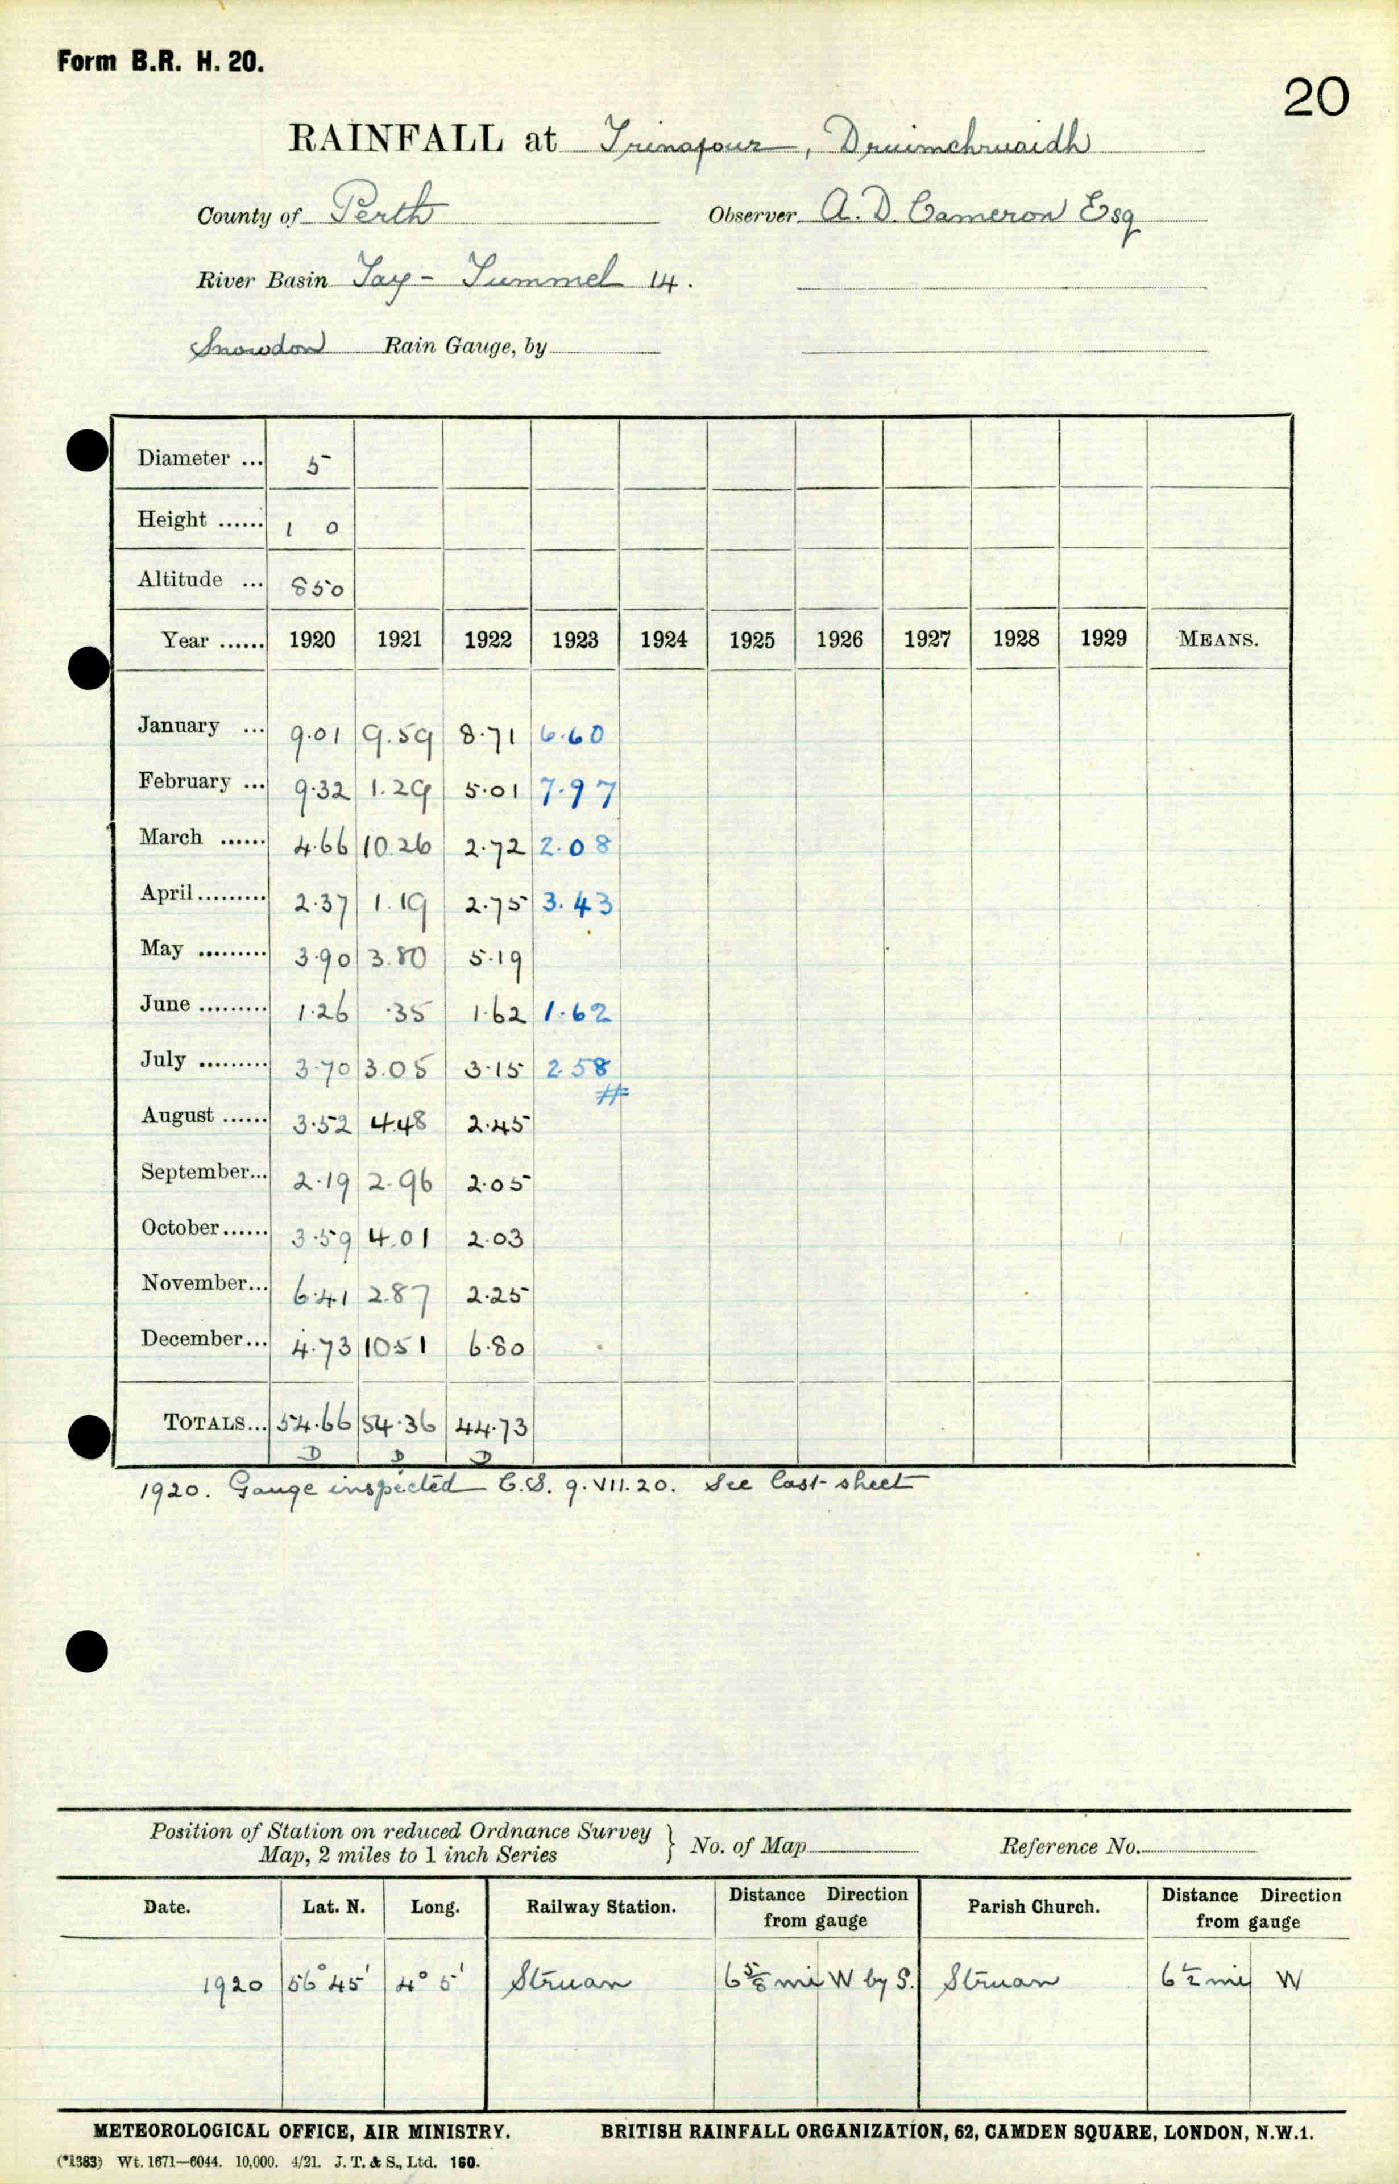 Form B.R. H. 20.
20
RAINFALL at Trinafour, Druimchruaidh
County of Perth Observer A. D. Cameron Esq
River Basin Tay - Tummel 14.
Snowdon Rain Gauge, by
Diameter ... 5
Height ...... 1 0
Altitude ... 850
Year ...... 1920 1921 1922 1923 1924 1925 1926 1927 1928 1929 MEANS.
January ... 9.01 9.59 8.71 6.60
February ... 9.32 1.29 5.01 7.97
March ...... 4.66 10.26 2.72 2.08
April ......... 2.37 1.19 2.75 3.43
May ......... 3.90 3.80 5.19
June ......... 1.26 .35 1.62 1.62
July ......... 3.70 3.05 3.15 2.58
#
August ...... 3.52 4.48 2.45
September... 2.19 2.96 2.05
October ...... 3.59 4.01 2.03
November... 6.41 2.87 2.25
December... 4.73 10.51 6.80
TOTALS... 54.66 54.36 44.73
D D D
1920. Gauge inspected C.S. 9.VII.20. See last sheet
Position of Station on reduced Ordnance Survey
Map, 2 miles to 1 inch Series } No. of Map Reference No.
Date. Lat. N. Long. Railway Station. Distance Direction from gauge Parish Church. Distance Direction from gauge
1920 56° 45' 4° 5' Struan 6 5/8 mi W by S. Struan 6 1/2 mi W
METEOROLOGICAL OFFICE, AIR MINISTRY. BRITISH RAINFALL ORGANIZATION, 62, CAMDEN SQUARE, LONDON, N.W.1.
(*1383) Wt. 1671—6044. 10,000. 4/21. J. T. & S., Ltd. 160.